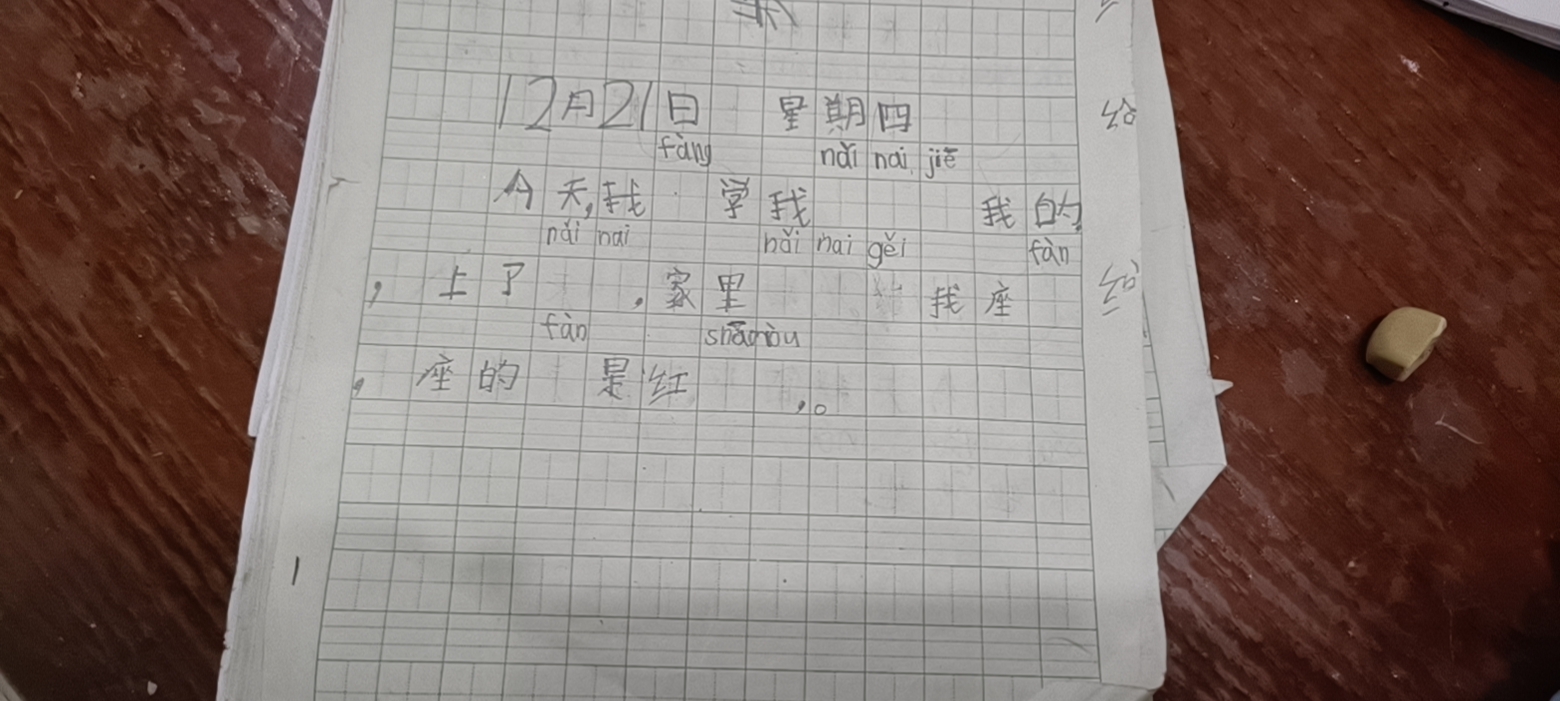 12月21日 星期四
fàng nǎi nai jiē
今天,我 学我 我的,
nǎi nai nǎi nai gěi fàn
,上了 ,家里 我座
fàn
,座的 是红 ,。